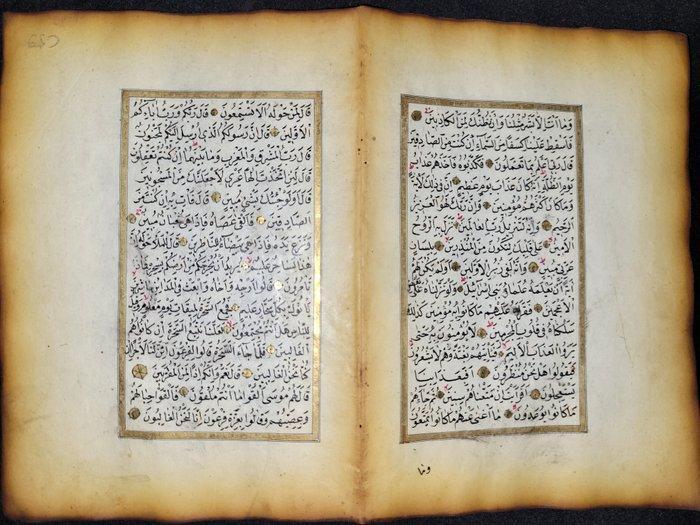 وَمَا أَنْتَ إِلَّا بَشَرٌ مِثْلُنَا وَإِنْ نَظُنُّكَ لَمِنَ الْكَاذِبِينَ
فَأَسْقِطْ عَلَيْنَا كِسَفًا مِنَ السَّمَاءِ إِنْ كُنْتَ مِنَ الصَّادِقِينَ
قَالَ رَبِّي أَعْلَمُ بِمَا تَعْمَلُونَ فَكَذَّبُوهُ فَأَخَذَهُمْ عَذَابُ
يَوْمِ الظُّلَّةِ إِنَّهُ كَانَ عَذَابَ يَوْمٍ عَظِيمٍ إِنَّ فِي ذَلِكَ لَآيَةً
وَمَا كَانَ أَكْثَرُهُمْ مُؤْمِنِينَ وَإِنَّ رَبَّكَ لَهُوَ الْعَزِيزُ
الرَّحِيمُ وَإِنَّهُ لَتَنْزِيلُ رَبِّ الْعَالَمِينَ نَزَلَ بِهِ الرُّوحُ
الْأَمِينُ عَلَى قَلْبِكَ لِتَكُونَ مِنَ الْمُنْذِرِينَ بِلِسَانٍ
عَرَبِيٍّ مُبِينٍ وَإِنَّهُ لَفِي زُبُرِ الْأَوَّلِينَ أَوَلَمْ يَكُنْ لَهُمْ
آيَةً أَنْ يَعْلَمَهُ عُلَمَاءُ بَنِي إِسْرَائِيلَ وَلَوْ نَزَّلْنَاهُ عَلَى بَعْضِ
الْأَعْجَمِينَ فَقَرَأَهُ عَلَيْهِمْ مَا كَانُوا بِهِ مُؤْمِنِينَ كَذَلِكَ
سَلَكْنَاهُ فِي قُلُوبِ الْمُجْرِمِينَ لَا يُؤْمِنُونَ بِهِ حَتَّى
يَرَوُا الْعَذَابَ الْأَلِيمَ فَيَأْتِيَهُمْ بَغْتَةً وَهُمْ لَا يَشْعُرُونَ
فَيَقُولُوا هَلْ نَحْنُ مُنْظَرُونَ أَفَبِعَذَابِنَا
يَسْتَعْجِلُونَ أَفَرَأَيْتَ إِنْ مَتَّعْنَاهُمْ سِنِينَ ثُمَّ جَاءَهُمْ
مَا كَانُوا يُوعَدُونَ مَا أَغْنَى عَنْهُمْ مَا كَانُوا يُمَتَّعُونَ
وما
قَالَ لِمَنْ حَوْلَهُ أَلَا تَسْتَمِعُونَ قَالَ رَبُّكُمْ وَرَبُّ آبَائِكُمُ
الْأَوَّلِينَ قَالَ إِنَّ رَسُولَكُمُ الَّذِي أُرْسِلَ إِلَيْكُمْ لَمَجْنُونٌ
قَالَ رَبُّ الْمَشْرِقِ وَالْمَغْرِبِ وَمَا بَيْنَهُمَا إِنْ كُنْتُمْ تَعْقِلُونَ
قَالَ لَئِنِ اتَّخَذْتَ إِلَهًا غَيْرِي لَأَجْعَلَنَّكَ مِنَ الْمَسْجُونِينَ
قَالَ أَوَلَوْ جِئْتُكَ بِشَيْءٍ مُبِينٍ قَالَ فَأْتِ بِهِ إِنْ كُنْتَ مِنَ
الصَّادِقِينَ فَأَلْقَى عَصَاهُ فَإِذَا هِيَ ثُعْبَانٌ مُبِينٌ
وَنَزَعَ يَدَهُ فَإِذَا هِيَ بَيْضَاءُ لِلنَّاظِرِينَ قَالَ لِلْمَلَإِ حَوْلَهُ إِنَّ
هَذَا لَسَاحِرٌ عَلِيمٌ يُرِيدُ أَنْ يُخْرِجَكُمْ مِنْ أَرْضِكُمْ بِسِحْرِهِ فَمَاذَا
تَأْمُرُونَ قَالُوا أَرْجِهْ وَأَخَاهُ وَابْعَثْ فِي الْمَدَائِنِ حَاشِرِينَ
يَأْتُوكَ بِكُلِّ سَحَّارٍ عَلِيمٍ فَجُمِعَ السَّحَرَةُ لِمِيقَاتِ يَوْمٍ مَعْلُومٍ وَقِيلَ
لِلنَّاسِ هَلْ أَنْتُمْ مُجْتَمِعُونَ لَعَلَّنَا نَتَّبِعُ السَّحَرَةَ إِنْ كَانُوا هُمُ
الْغَالِبِينَ فَلَمَّا جَاءَ السَّحَرَةُ قَالُوا لِفِرْعَوْنَ أَئِنَّ لَنَا لَأَجْرًا إِنْ
كُنَّا نَحْنُ الْغَالِبِينَ قَالَ نَعَمْ وَإِنَّكُمْ إِذًا لَمِنَ الْمُقَرَّبِينَ
قَالَ لَهُمْ مُوسَى أَلْقُوا مَا أَنْتُمْ مُلْقُونَ فَأَلْقَوْا حِبَالَهُمْ
وَعِصِيَّهُمْ وَقَالُوا بِعِزَّةِ فِرْعَوْنَ إِنَّا لَنَحْنُ الْغَالِبُونَ